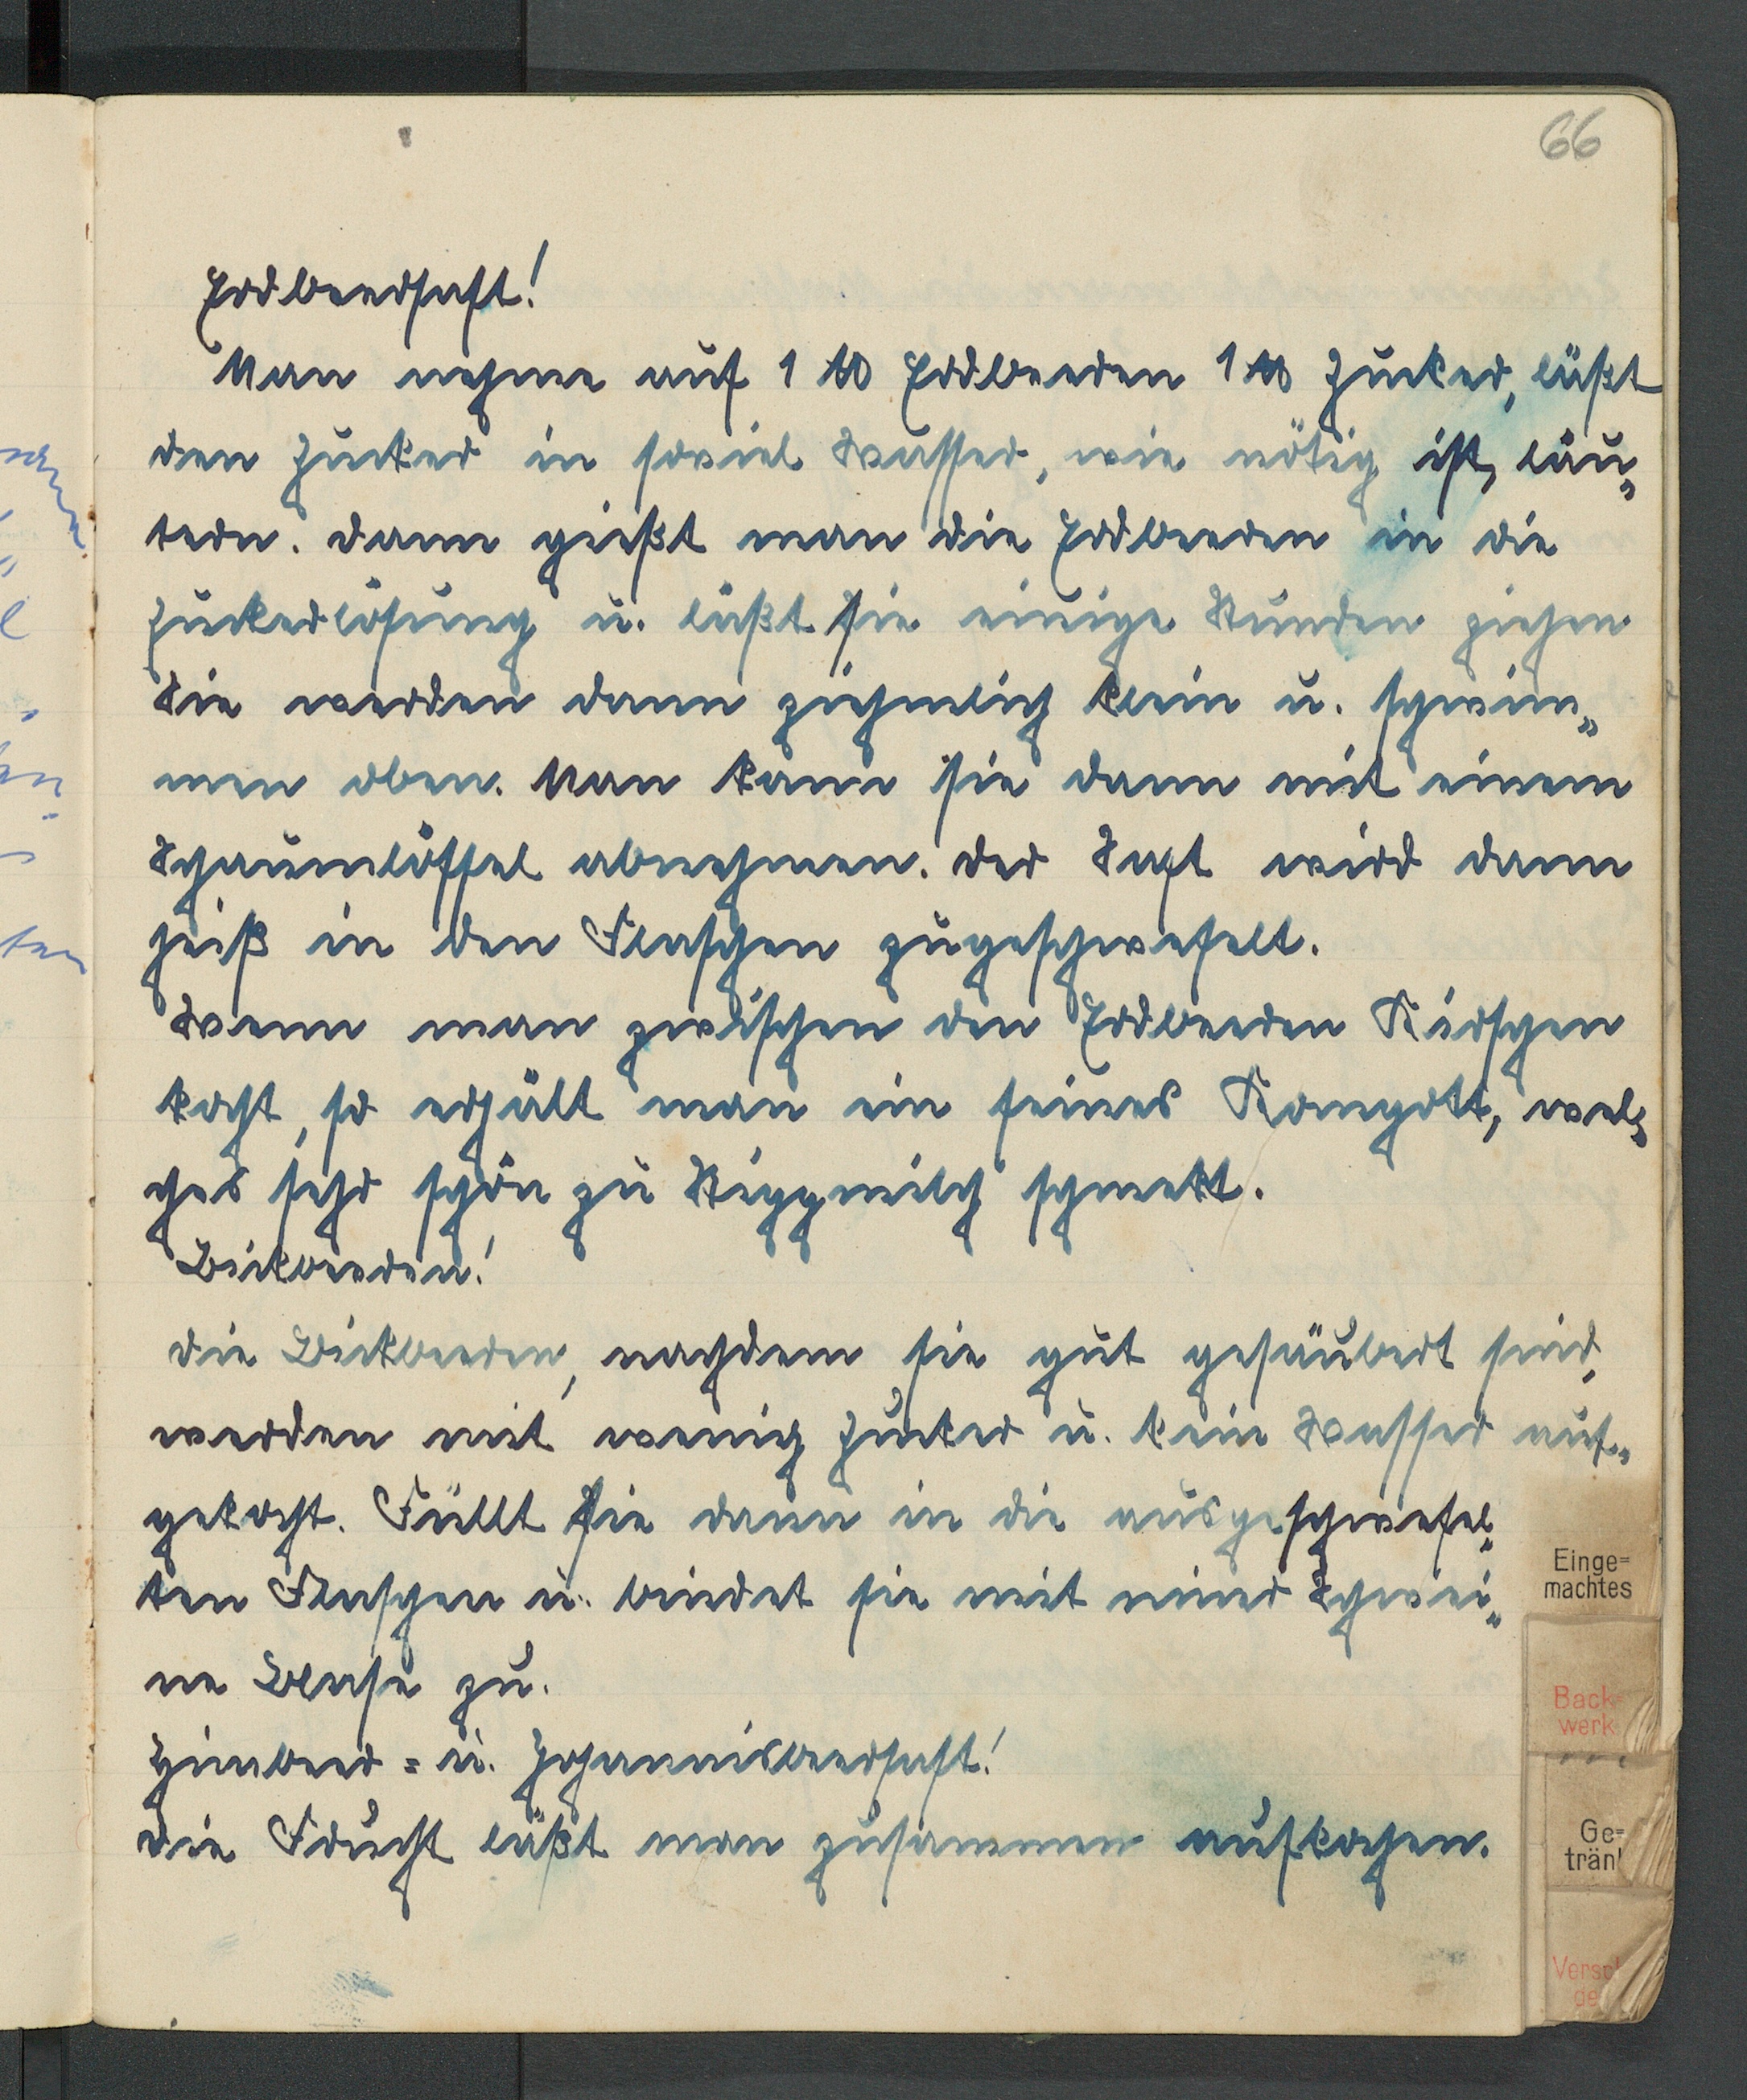 66
Erdbeersaft!
Man nehme auf 1 ℔ Erdbeeren 1 ℔ Zucker, läßt
den Zucker in soviel Wasser, wie nötig ist, läu„
tern. Dann gießt man die Erdbeeren in die
Zuckerlösung u. läßt sie einige Stunden ziehen
Sie werden dann ziehmlich klein u. schwim„
men oben. Man kann sie dann mit einem
Schaumlöffel abnehmen. Der Saft wird dann
heiß in den Flaschen zugeschwefelt.
Wenn man zwischen den Erdbeeren Kirschen
kocht, so erhält man ein feines Kompott, wel„
ches sehr schön zu Stippmilch schmekt.
Bickbeeren!
Die Bickbeeren, nachdem sie gut gesäubert sind,
werden mit wenig Zucker u. kein Wasser auf„
gekocht. Füllt sie dann in die ausgeschwefel„
ten Flaschen u. bindet sie mit einer Schwei„
ne Blase zu.
Himbeer = u. Johannisbeersaft!
Die Frucht läßt man zusammen aufkochen.
Einge=
machtes
Back=
werk
Ge=
trän
Versch
de